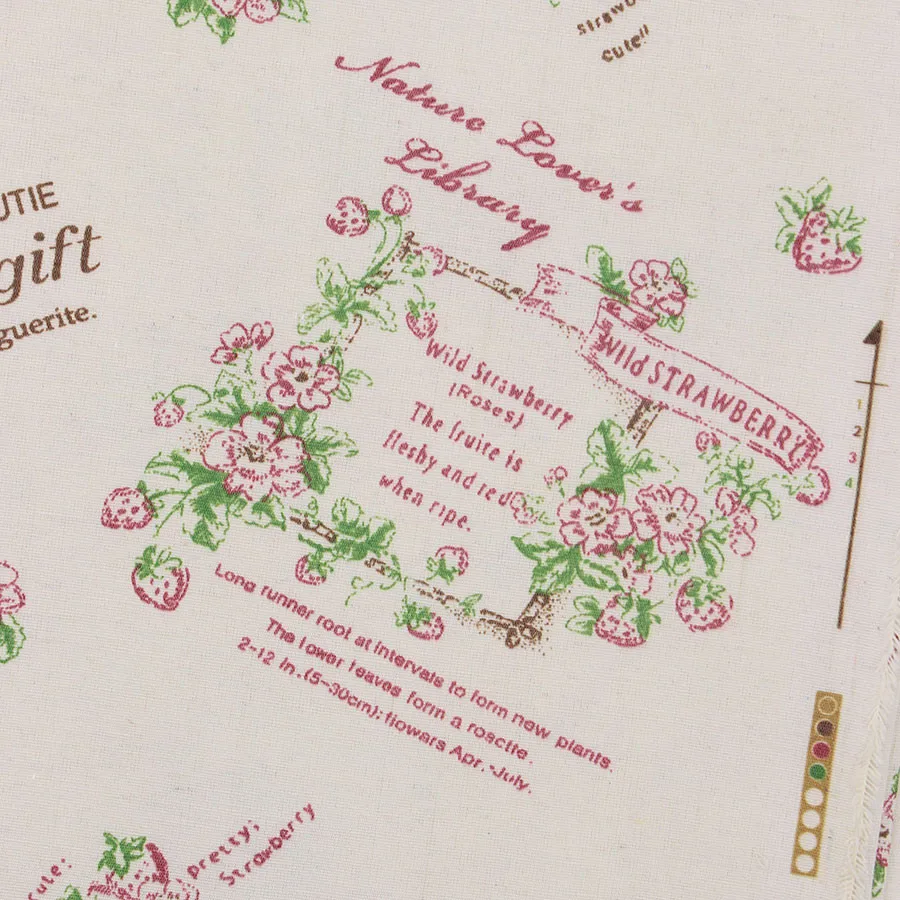 cute!!
Nature Lover's
Library
UTIE
gift
guerite.
Wild STRAWBERRY
Wild Strawberry
(Roses)
The fruite is
fleshy and red
when ripe.
1
2
3
4
Long runner root at intervals to form new plants.
The lower leaves form a rosctte.
2-12 in.(5-30cm); flowers Apr.-July.
cute:
pretty;
Strawberry